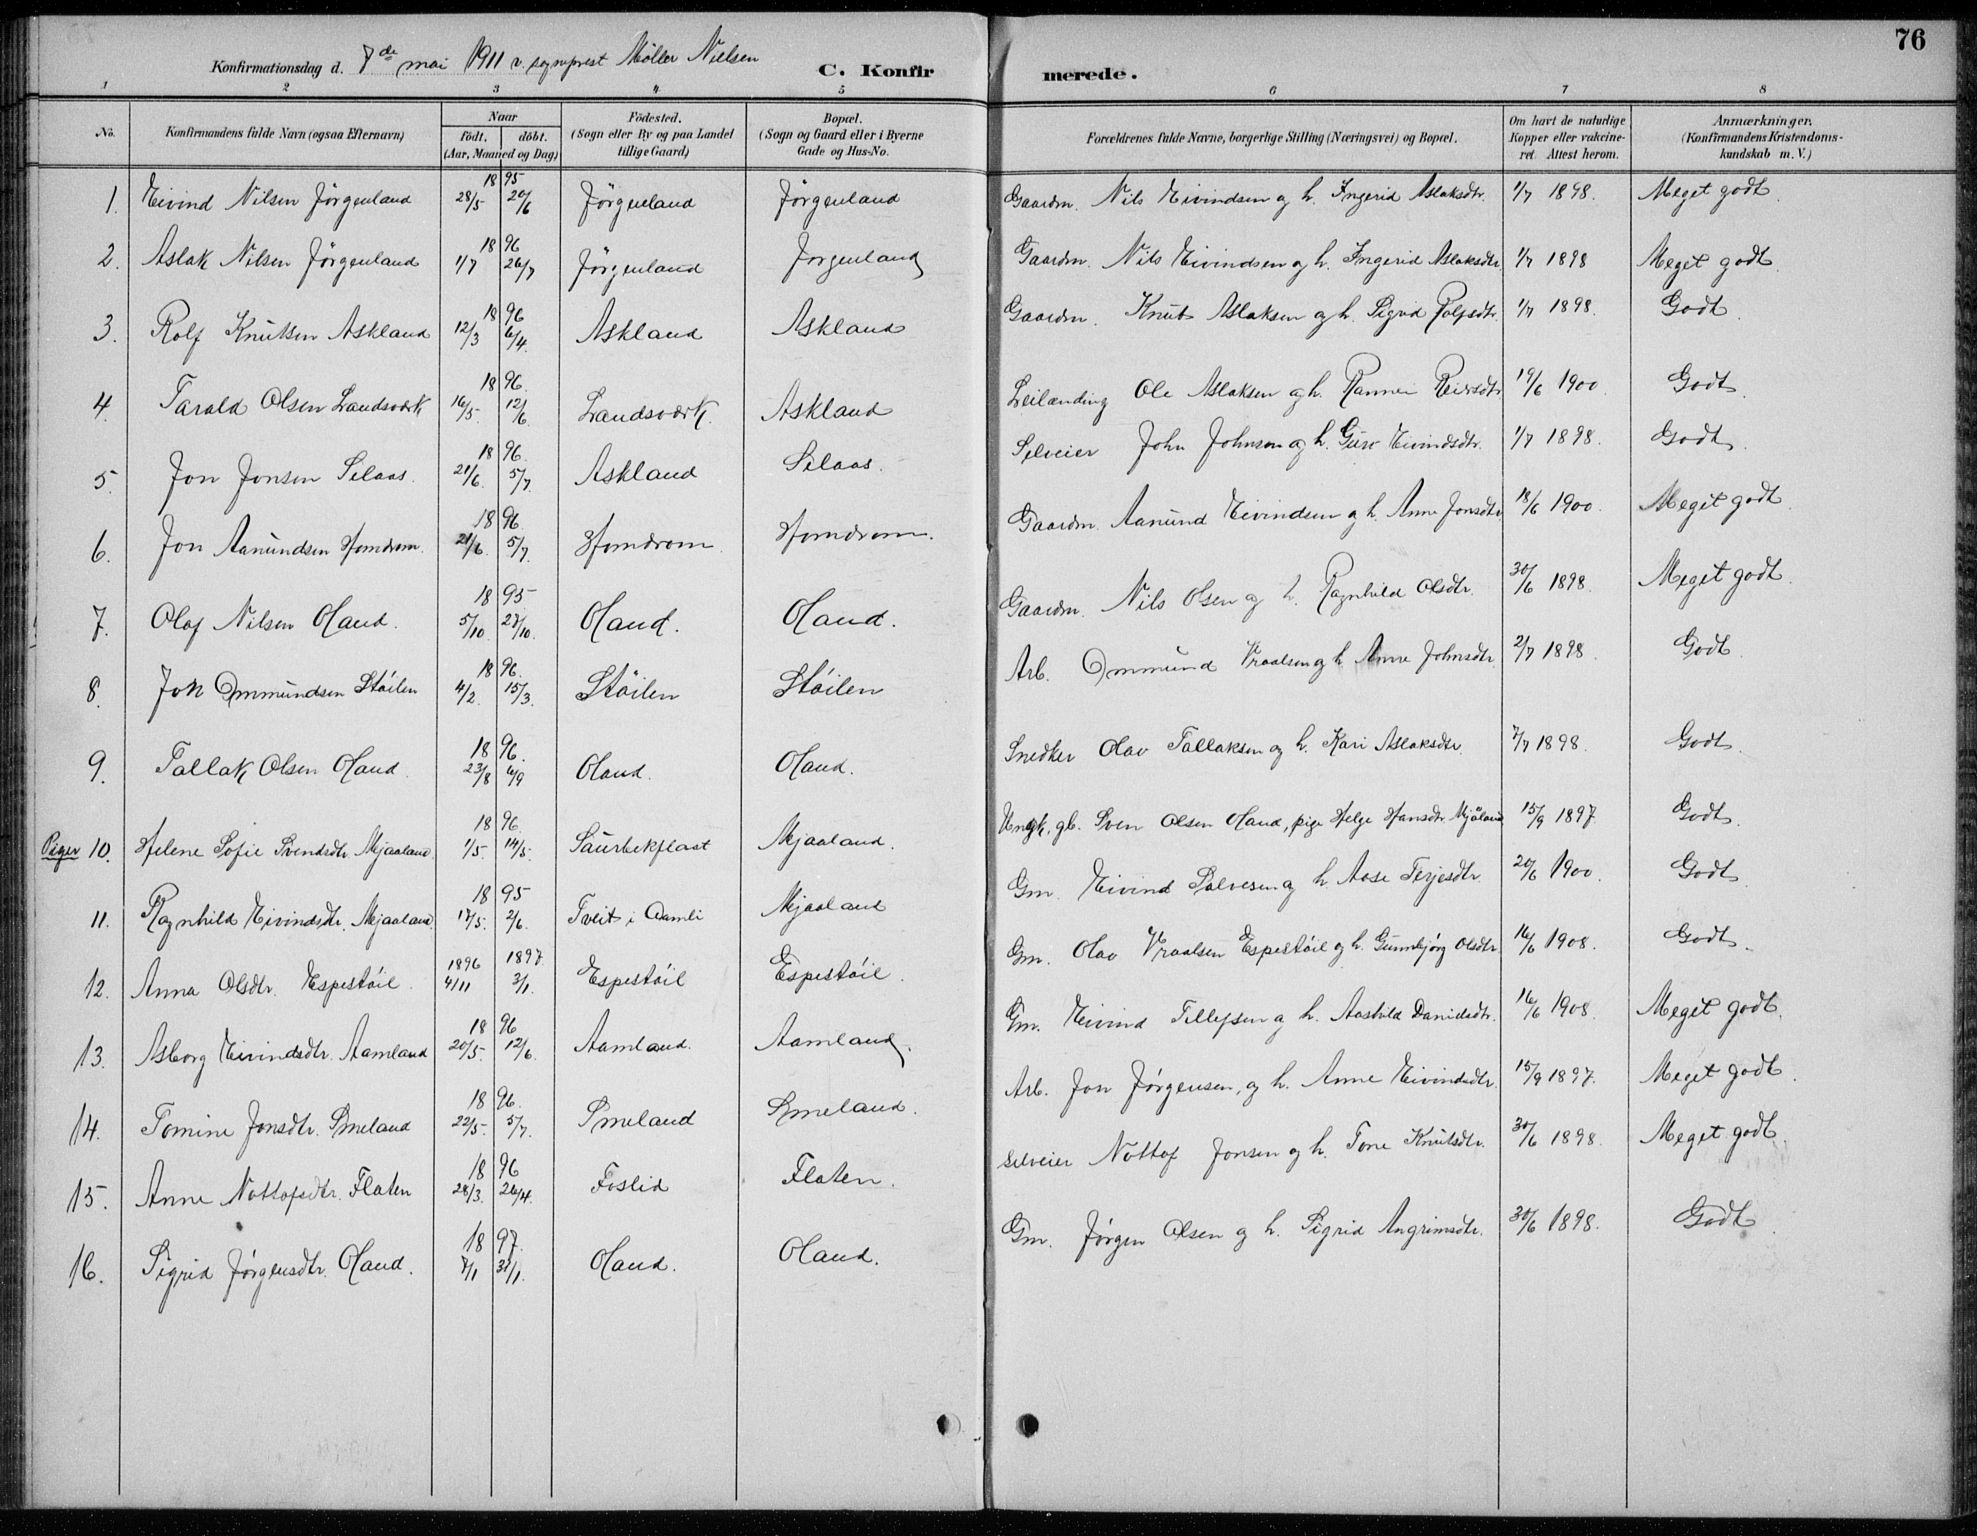 76
Konfirmationsdag d. 7de mai 1911 v. sogneprest Möller Nielsen
C. Konfirmerede.
1 2 3 4 5 6 7 8
No.
Konfirmandens fulde Navn (ogsaa Efternavn)
Naar
födt. döbt.
(Aar, Maaned og Dag)
Födested.
(Sogn eller By og paa Landet
tillige Gaard)
Bopæl.
(Sogn og Gaard eller i Byerne
Gade og Hus-No.
Forældrenes fulde Navne, borgerlige Stilling (Næringsvei) og Bopæl.
Om havt de naturlige
Kopper eller vakcine-
ret. Attest herom.
Anmærkninger.
(Konfirmandens Kristendoms-
kundskab m. V.)
1. Eivind Nilsen Jörgenland 1895 28/5 20/6 Jörgenland Jörgenland Gaardm. Nils Eivindsen og h. Ingerid Aslaksdtr. 1/7 1898. Meget godt.
2. Aslak Nilsen Jörgenland 1896 1/7 26/7 Jörgenland Jorgenland Gaardm. Nils Eivindsen og h. Ingerid Aslaksdtr. 1/7 1898 Meget godt.
3. Rolf Knutsen Askland 1896 12/3 6/4. Askland Askland Gaardm. Knut Aslaksen og h. Sigrid Rolfsdtr. 1/7 1898. Godt.
4. Tarald Olsen Landsverk 1896. 16/5. 12/6. Landsverk. Askland Leilænding Ole Aslaksen og h. Reiersdtr 19/6 1900 Godt.
5. Jon Jonsen Selaas. 1896. 21/6. 5/7. Askland Selaas. Selveier John Johnsen og h. Guro Eivindsdtr. 1/7 1898. Godt.
6. Jon Aanundsen Homdrom. 1896 21/6. 5/7. Homdrom Homdrom. Gaardm. Aanund Eivindsen og h. Anne Jonsdtr. 18/6 1900. Meget godt
7. Olaf Nilsen Oland. 1895 5/10. 27/10. Oland. Oland. Gaardm. Nils Olsen og h. Ragnhild Olsdtr. 30/6 1898. Meget godt.
8. Jon Ommundsen Stöilen 1896. 4/2. 15/3. Stöilen Stöilen Arb. Ommund Vraalsen og h. Anne Johnsdtr. 2/7 1898. Godt
9. Tallak Olsen Oland. 1896. 23/8 6/9 Oland. Oland. Snedker Olav Tallaksen og h. Kari Aslaksdtr. 7/7 1898. Godt.
Piger 10. Helene Sofie Svendsdtr. Mjaaland. 1896. 1/5. 14/5. Saurbekplast Mjaaland. Ungk. gb. Sven Olsen Oland, pige Helge Hansdtr. Mjåland 15/9 1897. Godt.
11. Ragnhild Eivindsdtr. Mjaaland. 1895 17/5. 2/6. Tveit i Aamli Mjaaland Gm. Eivind Salvesen og h. Aase Terjesdtr. 20/6 1900. Godt
12. Anna Olsdtr. Espestöil. 1896 4/11 1897. 3/1. Espestöil Espestöil. Gm. Olav Vraalsen Espestöil og h. Gunnbjörg Olsdtr. 16/6 1908. Godt.
13. Asborg Eivindsdtr. Aamland 1896 20/5. 12/6. Aamland. Aamland. Gm. Eivind Tellefsen og h. Aashild Danielsdtr. 16/6 1908. Meget godt.
14. Tomine Jonsdtr. Smeland 1896. 22/5. 5/7. Smeland Smeland. Arb. Jon Jörgensen, og h. Anne Eivindsdtr. 15/9 1897. Meget godt.
15. Anne Nottofsdtr. Flaten 1896 28/3. 26/4. Foslid Flaten. Selveier Nottof Jonsen og h. Tone Knutsdtr. 30/6 1898. Meget godt.
16. Sigrid Jörgensdtr. Oland. 1897. 7/1 31/1. Oland. Oland. Gm. Jörgen Olsen og h. Sigrid Angrimsdtr. 30/6 1898. Godt